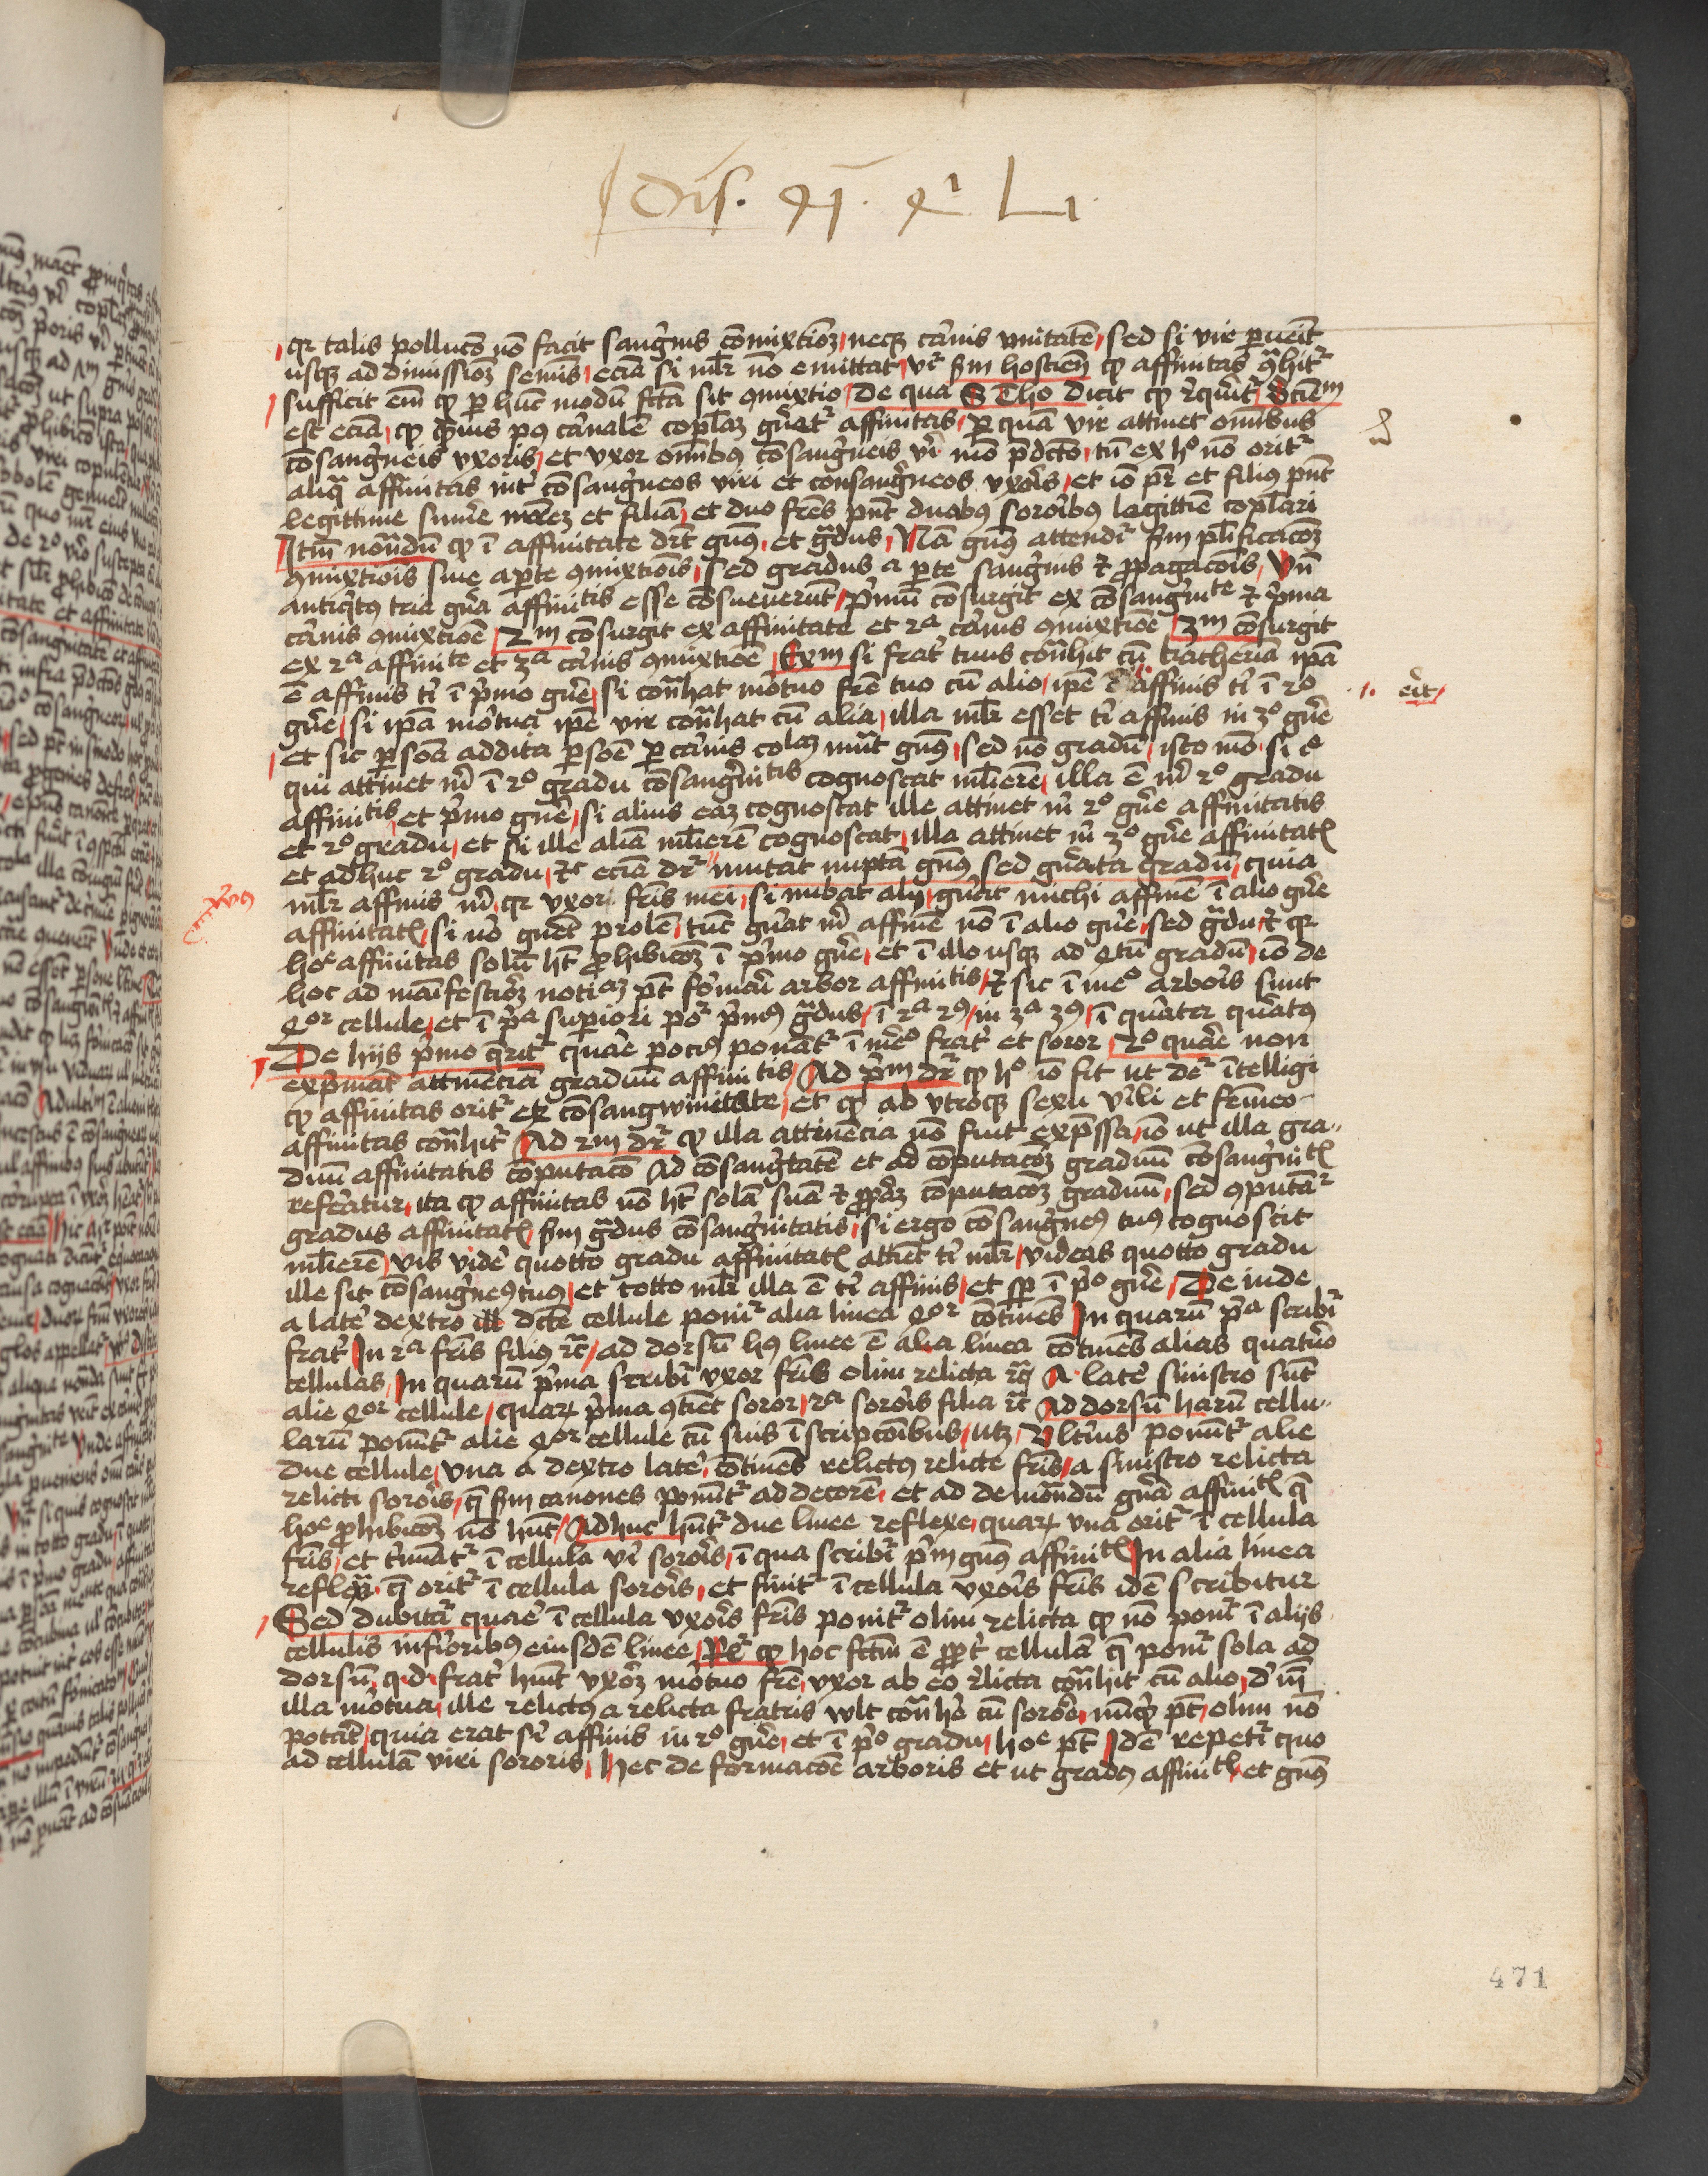 Dis. 41. q̄ L1.
qr talis polluco̅ no̅ facit sang'nis co̅mixtio̅z neqz c'nis vnitate̅ sed si vir p̲uēit
usqz ad dimissio̅z semīs ecia̅ si ml'r no̅ emittat vr̄ s̅m hostien̄ qꝫ affinitas ꝯ̄hitᷣ
sufficit em̄ qꝫ p̲ hu̅c modu̅ fctā sit ꝯmixtio De qua S Tho dicit qꝫ r̄q̄ritᷣ Sciēm
est ecia̅ qꝫ p̲ius pꝰ c'nale̅ copl̄az gn̄atᷣ affinitas p̲ qua̅ vir attinet om̅ibus
co̅sang'neis vxoris et vxor om̅ibꝰ co̅sang'neis vi̅ mo̅ p̄dcto tn̄ ex hᵒ no̅ oritᷣ
aliq̄ affinitas int' co̅sang'neos viri et consang'neos vxo̅is et io̅ pr̄ et filiꝰ pn̄t
legittime sum̄e mr̄ez et filia̅ et duo frēs pn̄t duabꝰ soro̅ibꝰ legittīe copl̄ari
Itm̄ nota̅du̅ qꝫ ī affinitate dr̄t gn̄ꝰ et g̅dus Na̅ gn̄ꝰ attendiᷣ s̅m pl̄ificaco̅z
ꝯmixtiois siue a p̲te ꝯmixtiois sed gradus a p̲te sang'nis ⁊ p̲pagaco̅is Vn̄
antiq'tꝰ tria gn̄a affinitis esse co̅sueuerūt p'mu̅ co̅surgit ex co̅sang'nite ⁊ p'ma
c'nis ꝯmixtio̅e 2m co̅surgit ex affinitate et 2a c'nis ꝯmixtio̅e 3m co̅surgit
ex 2a affinite et 3a c'nis ꝯmixtio̅e Exm si frat' tuus co̅t̄hit cu̅ katherīa ip̄a
ē affinis t' ī p'mo gn̄e si co̅t̄hat mo̅tuo frē tuo cu̅ alio ip̄e ē affinis t' ī 2o
er̄it
gn̄e si ip̄a mo̅tua ip̄e vir co̅t̄hat cu̅ alia illa ml'r esset t' affinis in 3o gn̄e
et sic p̲sona addita p̲so̅e p̲ c'nis colaz mu̅t gn̄ꝰ sed no̅ gradu̅ isto mo̅ si
qui attinet m' ī 2o gradu co̅sang'nitis cognoscat ml'iere̅ illa ē m' 2o gradu
affinitis et p'mo gn̄e si alius eaz cognoscat ille attinet m' 2o gn̄e affinitatis
et 2o gradu et si ille alia̅ ml'iere̅ cognoscat illa attinet m' 3o gn̄e affinitatꝭ
et adhuc 2o gradu ⁊c ecia̅ drᷣ mutat nupta̅ gn̄ꝰ sed gn̄ata gradu̅ quia
ml'r affinis m' qr vxor fr̄is mei si nubat alij gn̄at michi affine̅ ī alio gn̄e
affinitatꝭ si u̅o gn̄et prole̅ tūc gn̄at m' affine̅ no̅ ī alio gn̄e sed g̅du ⁊ qr
hec affinitas solu̅ ht̄ p̲hibico̅z ī p'mo gn̄e et ī illo usqz ad qtu̅ gradu̅ io̅ de
hoc ad manifestio̅z noticiaz pt̄ fo̅mari arbor affinitis ⁊ sic ī meo arbo̅is sunt
qor cellule et ī p'a sup̲iori poᷣ p'mꝰ g̅dus ī 2a 2ꝰ in 3a 3ꝰ ī quarter quartꝰ
De hijs p'mo q̄ritᷣ quar̄e pociꝰ ponāt̄ᷣ ī meo frat' et soror 2o quar̄e non
exp'mat attinencia̅ graduu̅ affinitis Ad p'm drᷣ qꝫ hᵒ io̅ fit ut deᷣ ītelligi
qꝫ affinitas oritᷣ ex co̅sangwinitate et qꝫ ab vtroqz sexu vi̅li et femīeo
affinitas co̅t̄hitᷣ Ad 2m drᷣ qꝫ illa attinencia no̅ fuit exp̄ssa io̅ ut illa gra-
duu̅ affinitatis co̅putaco̅ ad co̅sang'tate̅ et ad co̅putaco̅z graduu̅ co̅sang'nitꝭ
refer̄atur ita qꝫ affinitas no̅ ht̄ sola̅ sua̅ ⁊ p̲p̲az co̅putaco̅z graduu̅ sed ꝯputa̅ᷣ
gradus affinitatꝭ s̅m g̅dus co̅sang'nitatis si ergo co̅sang'neꝰ tuꝰ cognoscit
ml'iere̅ vis vide' quotto gradu affinitatꝭ attīet t' ml'r videas quotto gradu
ille sit co̅sang'neꝰ tuꝰ et totto ml'r illa ē t' affinis et sp̲ ī p'o gn̄e Deinde
a late' dextro dcte̅ cellule poniᷣ alia linea qor co̅tine̅s In quaru̅ p'a scribiᷣ
frat' In 2a fr̄is filiꝰ ⁊c ad dorsu̅ hꝰ linee ē alia linea co̅tine̅s alias quatuo̅
cellulas In quaru̅ p'ma scribiᷣ vxor fr̄is olim relicta ⁊c A late' sinistro su̅t
alie qor cellule quarꝝ p'ma ꝯtīet soror 2a soro̅is filia ⁊c Ad dorsu̅ haru̅ cellu-
laru̅ ponu̅tᷣ alie qor cellule cu̅ suis īscripco̅ibus utz Vltius ponu̅tᷣ alie
due cellule vna a dextro late' co̅tine̅s relictꝰ relicte fr̄is a sinistro relicta
relicti soro̅is q̄ s̅m canones ponu̅tᷣ ad decore̅ et ad demo̅strandu̅ gn̄a affinitꝭ q̄
hoc p̲hibico̅z no̅ hn̄t Adhuc hn̄tᷣ due linee reflexe quarꝝ vna oritᷣ ī cellula
fr̄is et t'minatᷣ ī cellula vi̅ soro̅is ī qua scribiᷣ p'm gn̄ꝰ affinitꝭ In alia linea
reflexa q̄ oritᷣ ī cellula soro̅is et finitᷣ ī cellula vxo̅is fr̄is ide̅ scribitur
Sed dubitaᷣ quar̄e ī cellula vxo̅is fr̄is ponitᷣ olim relicta qꝫ no̅ poniᷣ ī alijs
cellulis infi̅oribꝰ eiusde̅ linee Rꝰ qꝫ hoc fctm̄ ē p̲pt' cellula̅ q̄ poniᷣ sola ad
dorsu̅ q.d. frat' hūit vxo̅z mo̅tuo frē vxor ab eo r̄licta co̅t̄hit cu̅ alio
illa mo̅tua ille relictꝰ a relicta fratris wlt co̅t̄he' cu̅ soro̅e nu̅qd pt̄ olim no̅
potāt quia erat s' affinis in 2o gn̄e et ī p'o gradu hoc pt̄ Ide̅ repetiᷣ quo
ad cellula̅ viri sororis Hec de formaco̅e arboris et ut gradꝰ affinitꝭ et gn̄ꝰ
471